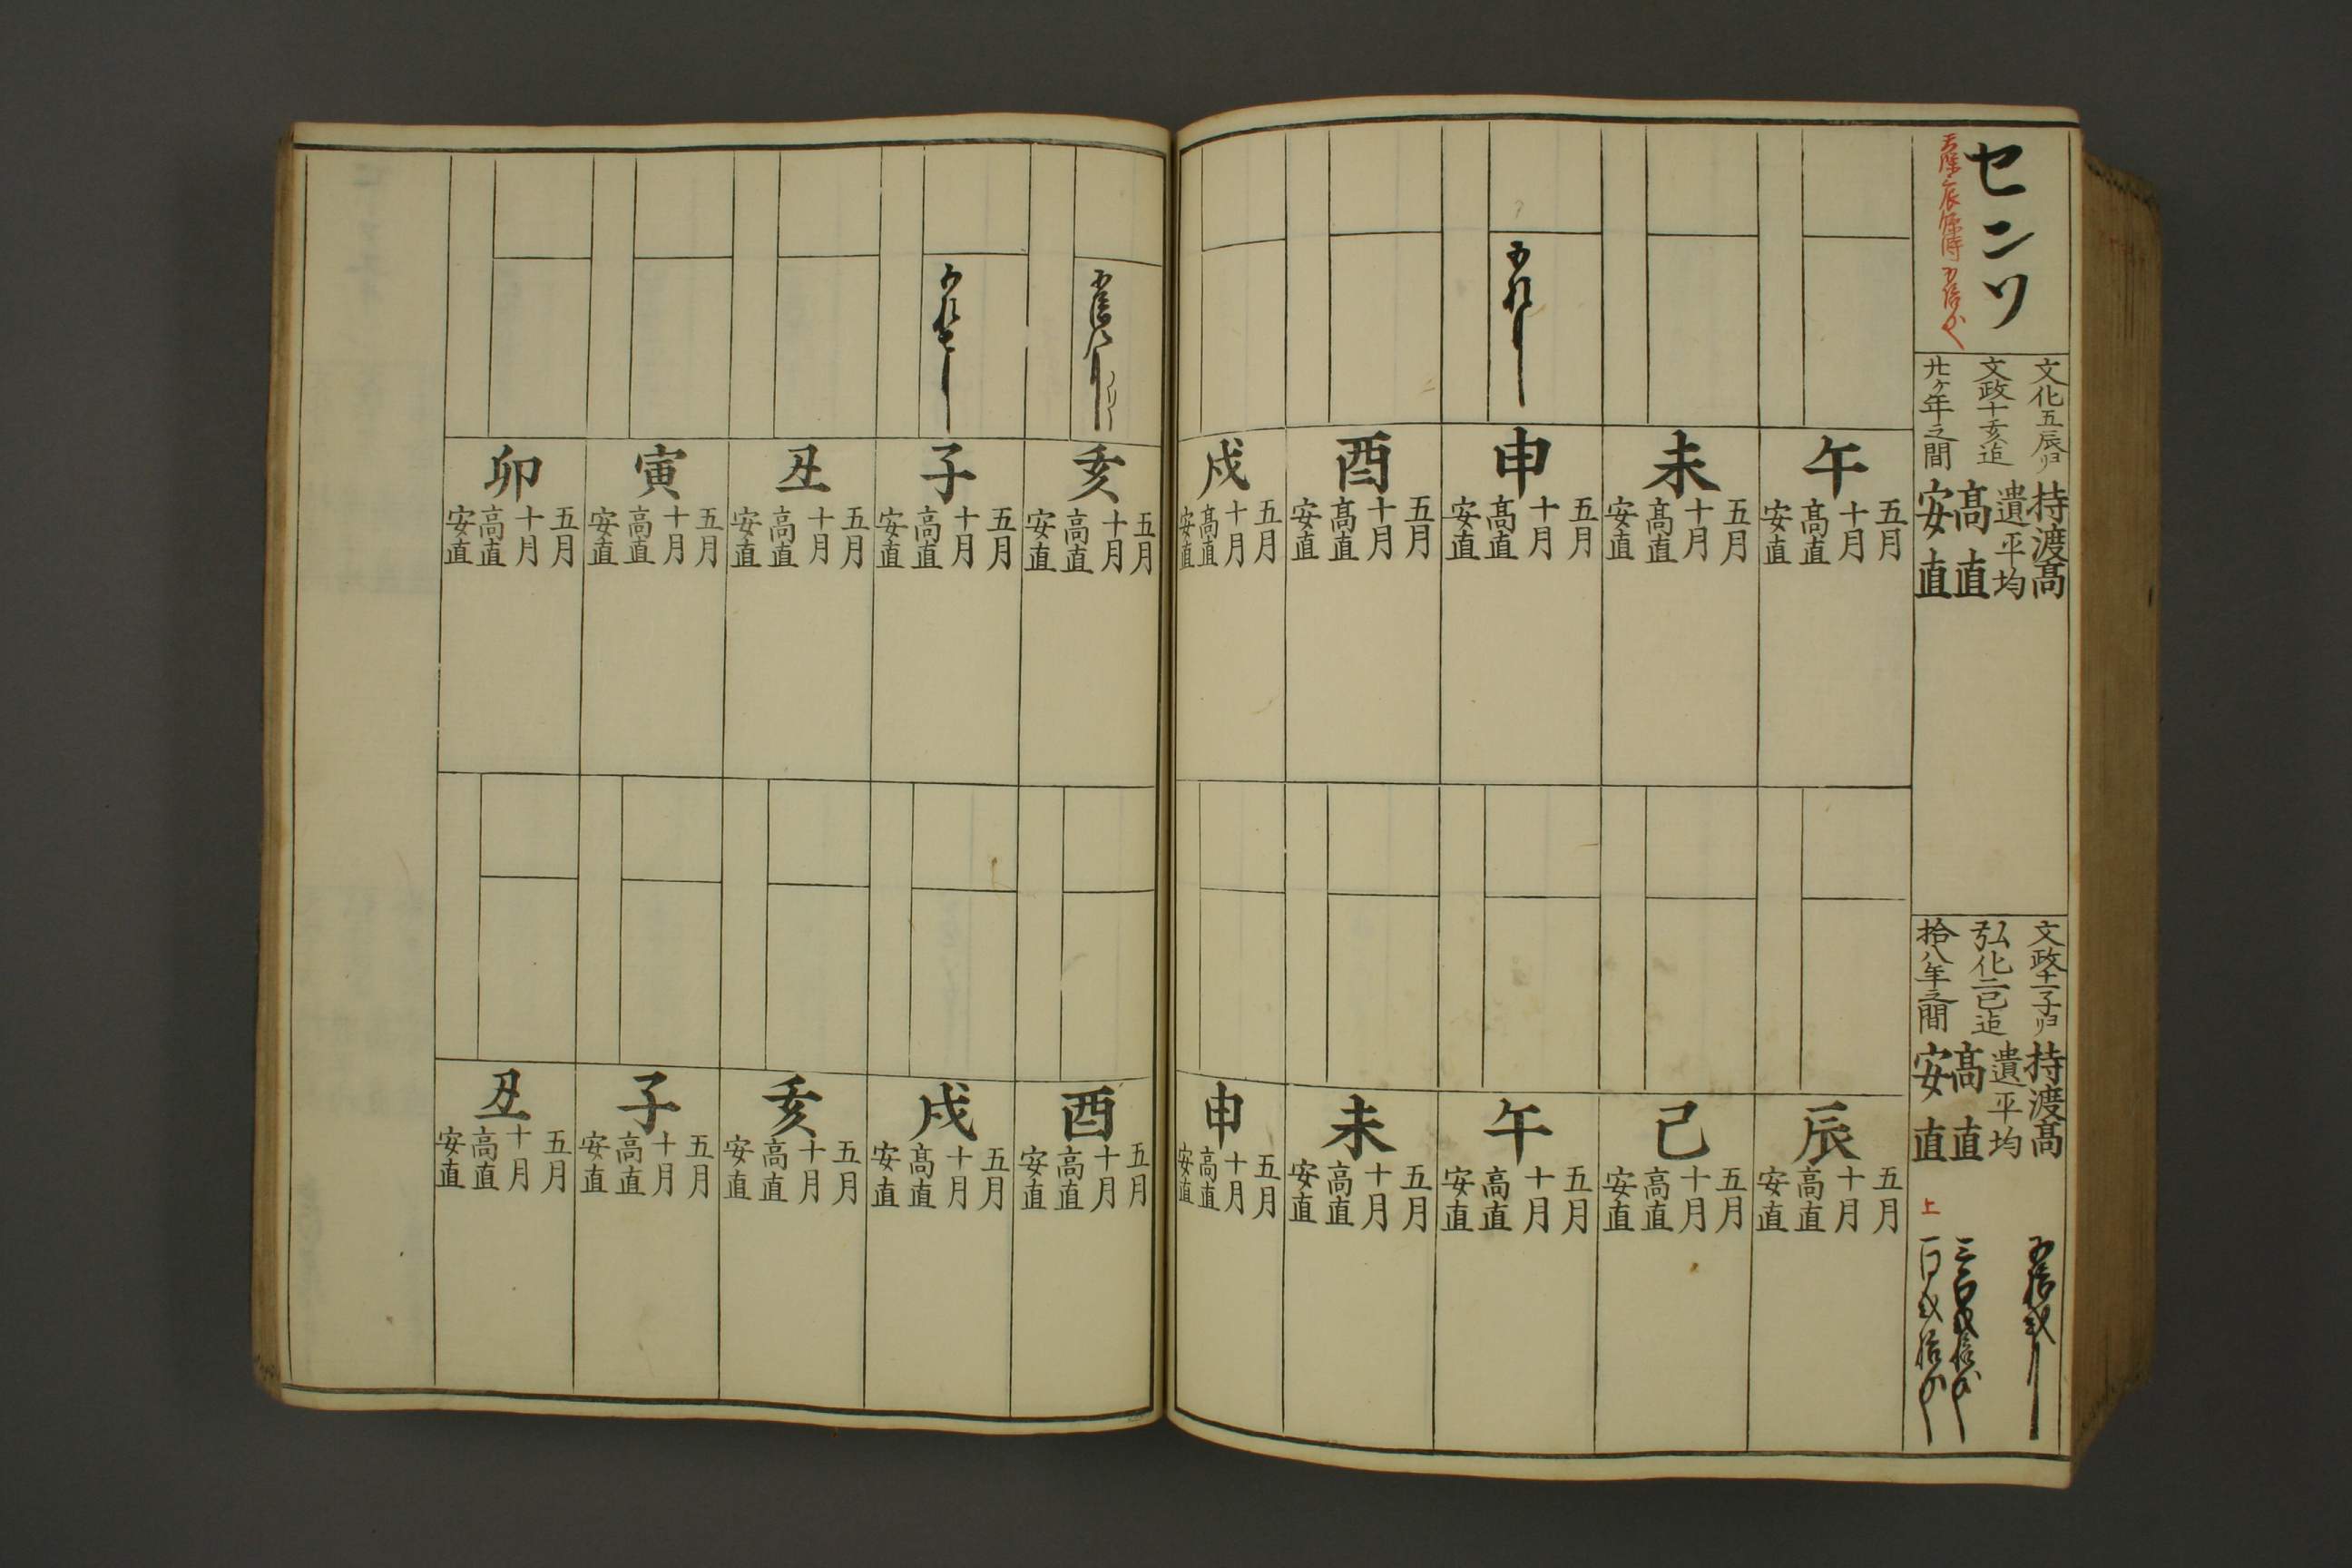 センソ
文化五辰ヨリ
文政十亥迠
廿ケ年之間
持渡髙
遺平均
髙直
安直
文政十一子ヨリ
弘化二巳迠
拾八年之間
持渡髙
遺平均
髙直
安直
上
午
五月
十月
髙直
安直
未
五月
十月
髙直
安直
申
五月
十月
髙直
安直
酉
五月
十月
髙直
安直
戌
五月
十月
髙直
安直
辰
五月
十月
髙直
安直
巳
五月
十月
髙直
安直
午
五月
十月
髙直
安直
未
五月
十月
髙直
安直
申
五月
十月
髙直
安直
亥
五月
十月
髙直
安直
子
五月
十月
髙直
安直
丑
五月
十月
髙直
安直
寅
五月
十月
髙直
安直
卯
五月
十月
髙直
安直
酉
五月
十月
髙直
安直
戌
五月
十月
髙直
安直
亥
五月
十月
髙直
安直
子
五月
十月
髙直
安直
丑
五月
十月
髙直
安直